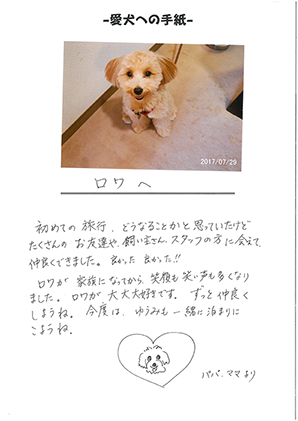 -愛犬への手紙-
2017/07/29
ロワへ
初めての旅行、どうなることかと思っていたけど
たくさんの お友達や、飼い主さん、スタッフの方に会えて、
仲良くできました。良かった 良かった!!
ロワが 家族になってから、笑顔も笑い声も多くなり
ました。ロワが 大大大好きです。ずっと仲良く
しようね。今度は、ゆうみも一緒に泊まりに
こようね。
パパ、ママより